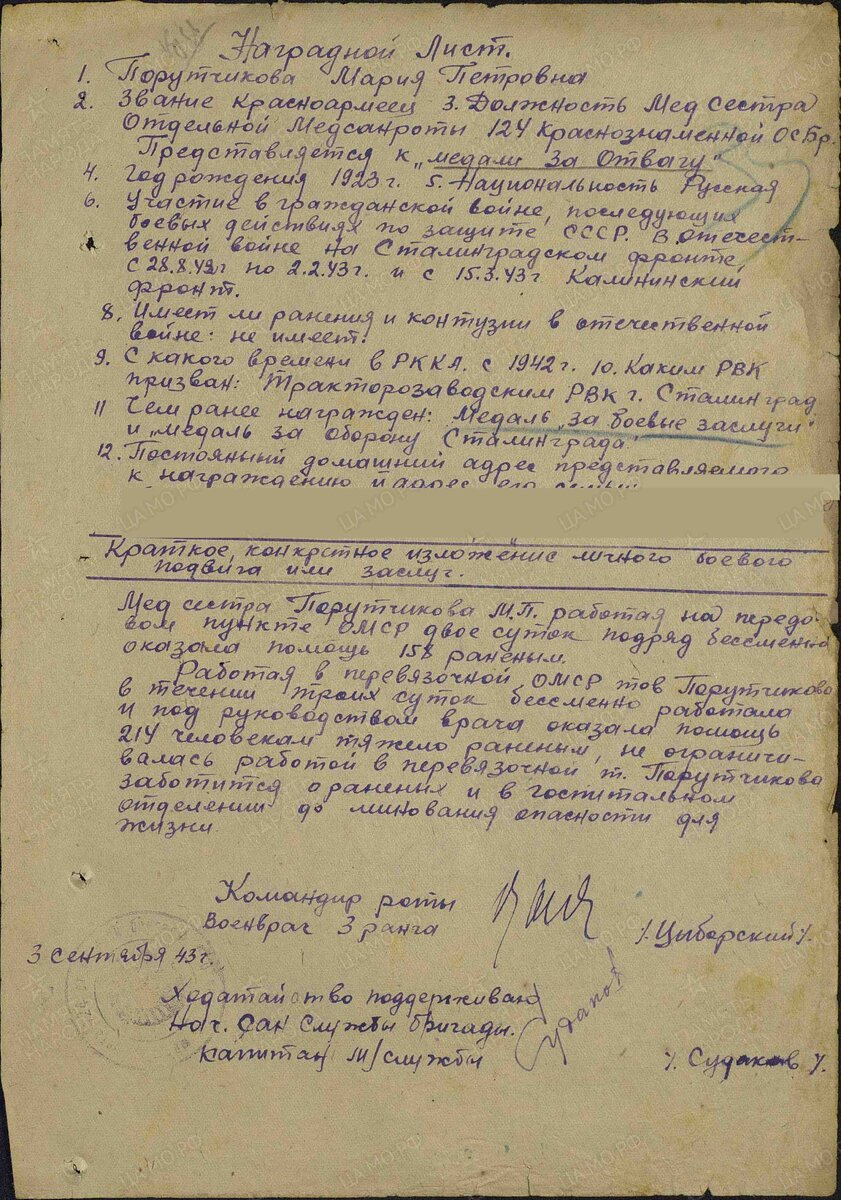 Наградной Лист.
1. Порутчикова Мария Петровна
2. Звание красноармеец 3. Должность Мед сестра
Отдельной Медсанроты 124 Краснознаменной ОСБр.
Представляется к "медали За Отвагу"
4. Год рождения 1923 г. 5. Национальность Русская
6. Участие в гражданской войне, последующих
боевых действиях по защите СССР. В отечест-
венной войне на Сталинградском фронте
с 28.8.42г по 2.2.43г. и с 15.3.43г Калининский
фронт.
8. Имеет ли ранения и контузии в отечественной
войне: не имеет.
9. С какого времени в РККА. с 1942 г. 10. Каким РВК
призван: Тракторозаводским РВК г. Сталинград
11 Чем ранее награжден: Медаль "за боевые заслуги"
и "медаль за оборону Сталинграда".
12. Постоянный домашний адрес представляемого
к награждению и адрес его семьи
Краткое, конкретное изложение личного боевого
подвига или заслуг.
Мед сестра Порутчикова М.П. работая на передо-
вом пункте ОМСР двое суток подряд бессменно
оказала помощь 158 раненым.
Работая в перевязочной ОМСР тов Порутчикова
в течении троих суток бессменно работала
и под руководством врача оказала помощь
214 человекам тяжело раненым, не ограничи-
валась работой в перевязочной т. Порутчикова
заботится о раненых и в госпитальном
отделении до минования опасности для
жизни.
Командир роты
Военврач 3 ранга /. Цыборский /.
3 сентября 43 г.
Ходатайство поддерживаю
Нач. Сан Службы бригады.
капитан м/службы Судаков /. Судаков /.